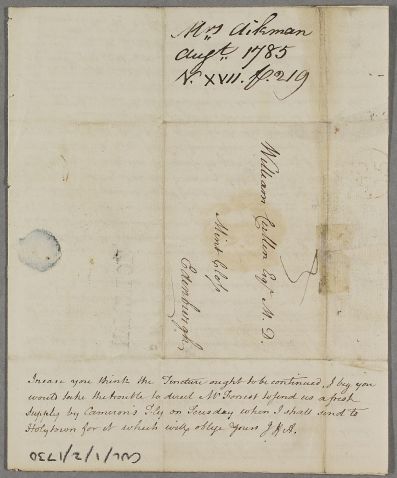 Mrs Aikman
Augt. 1785
N. XVII. p. 219
William Cullen Esqr. M. D.
Mint Closs
Edinburgh
Incase you think the Tincture ought to be continued, I beg you
would take the trouble to direct Mr Forrest to send us a fresh
supply by Cameron's Fly on Tuesday when I shall send to
Holytown for it which will oblige Yours J K A.
CUL/1/2/1730